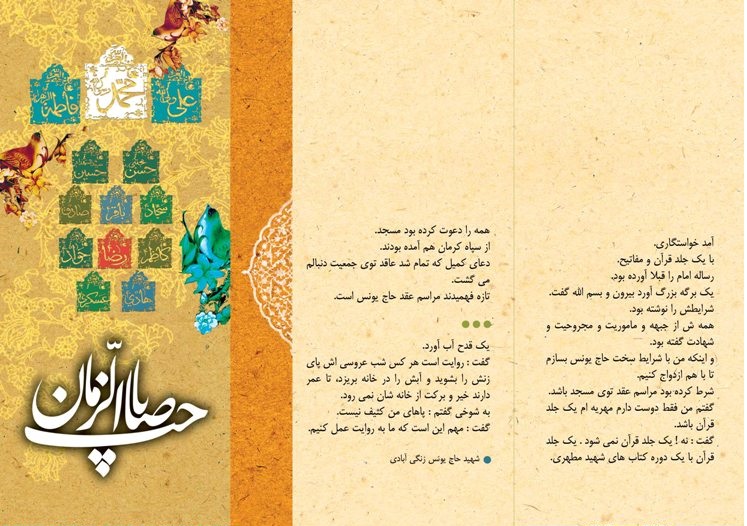 آمد خواستگاری.
با یک جلد قرآن و مفاتیح.
رساله امام را قبلا آورده بود.
یک برگه بزرگ آورد بیرون و بسم الله گفت.
شرایطش را نوشته بود.
همه ش از جبهه و ماموریت و مجروحیت و
شهادت گفته بود.
و اینکه من با شرایط سخت حاج یونس بسازم
تا با هم ازدواج کنیم.
شرط کرده بود مراسم عقد توی مسجد باشد.
گفتم من فقط دوست دارم مهریه ام یک جلد
قرآن باشد.
گفت : نه ! یک جلد قرآن نمی شود . یک جلد
قرآن با یک دوره کتاب های شهید مطهری.
همه را دعوت کرده بود مسجد.
از سپاه کرمان هم آمده بودند.
دعای کمیل که تمام شد عاقد توی جمعیت دنبالم
می گشت.
تازه فهمیدند مراسم عقد حاج یونس است.
یک قدح آب آورد.
گفت : روایت است هر کس شب عروسی اش پای
زنش را بشوید و آبش را در خانه بریزد، تا عمر
دارند خیر و برکت از خانه شان نمی رود.
به شوخی گفتم : پاهای من کثیف نیست.
گفت : مهم این است که ما به روایت عمل کنیم.
شهید حاج یونس زنگی آبادی
علی محمد فاطمة
حسن حسین
سجاد باقر صادق
کاظم رضا جواد
هادی عسکری
یا صاحب الزمان